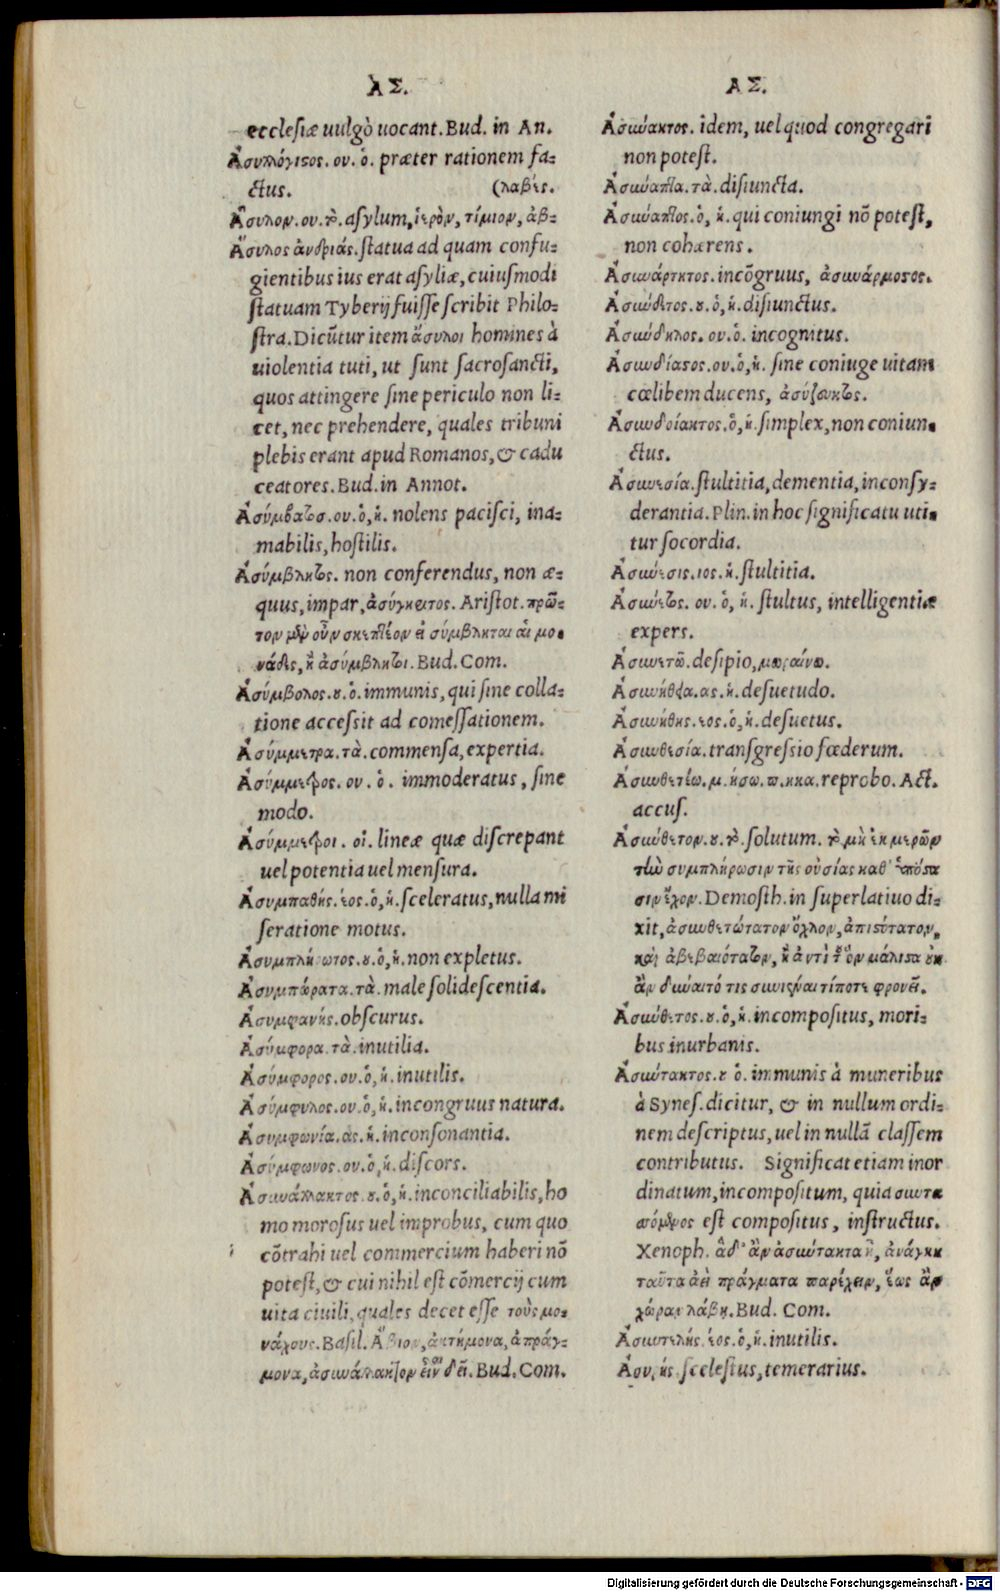 ΑΣ.
ecclesiæ uulgò uocant. Bud. in An.
Ἀσυλλόγιστος. ου. ὁ. præter rationem fa-
ctus. (λαβές.
Ἄσυλον. ου. τὸ. asylum, ἱερὸν, τίμιον, ἀβ-
Ἄσυλος ἀνδριάς. statua ad quam confu-
gientibus ius erat asyliæ, cuiusmodi
statuam Tyberij fuisse scribit Philo-
stra. Dicūtur item ἄσυλοι homines à
uiolentia tuti, ut sunt sacrosancti,
quos attingere sine periculo non li-
cet, nec prehendere, quales tribuni
plebis erant apud Romanos, & cadu
ceatores. Bud. in Annot.
Ἀσύμβατος. ου. ὁ, ἡ. nolens pacisci, ina-
mabilis, hostilis.
Ἀσύμβλητος. non conferendus, non æ-
quus, impar, ἀσύγκριτος. Aristot. πρῶ-
τον μὲν οὖν σκεπτέον εἰ σύμβληται αἱ μο-
νάδες, ἢ ἀσύμβλητοι. Bud. Com.
Ἀσύμβολος. ου. ὁ. immunis, qui sine colla-
tione accessit ad comessationem.
Ἀσύμμετρα. τὰ. commensa, expertia.
Ἀσύμμετρος. ου. ὁ. immoderatus, sine
modo.
Ἀσύμμετροι. οἱ. lineæ quæ discrepant
uel potentia uel mensura.
Ἀσυμπαθής. έος. ὁ, ἡ. sceleratus, nulla mi
seratione motus.
Ἀσυμπλήρωτος. ου. ὁ, ἡ. non expletus.
Ἀσυμπώρατα. τὰ. male solidescentia.
Ἀσυμφανής. obscurus.
Ἀσύμφορα. τὰ. inutilia.
Ἀσύμφορος. ου. ὁ, ἡ. inutilis.
Ἀσύμφυλος. ου. ὁ, ἡ. incongruus natura.
Ἀσυμφωνία. ας. ἡ. inconsonantia.
Ἀσύμφωνος. ου. ὁ, ἡ. discors.
Ἀσυνάλλακτος. ου. ὁ, ἡ. inconciliabilis, ho
mo morosus uel improbus, cum quo
cōtrahi uel commercium haberi nō
potest, & cui nihil est cōmercij cum
uita ciuili, quales decet esse τοὺς μο-
νάχους. Basil. Ἄβιον, ἀκτήμονα, ἀπράγ-
μονα, ἀσυνάλλακτον εἶναι δεῖ. Bud. Com.
ΑΣ.
Ἀσύνακτος. idem, uel quod congregari
non potest.
Ἀσύναπτα. τὰ. disiuncta.
Ἀσύναπτος. ὁ, ἡ. qui coniungi nō potest,
non cohærens.
Ἀσυνάρτητος. incōgruus, ἀσυνάρμοστος.
Ἀσύνδετος. ου. ὁ, ἡ. disiunctus.
Ἀσύνδηλος. ου. ὁ. incognitus.
Ἀσυνδίαστος. ου. ὁ, ἡ. sine coniuge uitam
cælibem ducens, ἀσύζευκτος.
Ἀσυνδοίακτος. ὁ, ἡ. simplex, non coniun-
ctus.
Ἀσυνεσία. stultitia, dementia, inconsy-
derantia. Plin. in hoc significatu uti-
tur socordia.
Ἀσύνεσις. ιος. ἡ. stultitia.
Ἀσύνετος. ου. ὁ, ἡ. stultus, intelligentiæ
expers.
Ἀσυνετῶ. desipio, μωραίνω.
Ἀσυνήθεια. ας. ἡ. desuetudo.
Ἀσυνήθης. εος. ὁ, ἡ. desuetus.
Ἀσυνθεσία. transgressio fœderum.
Ἀσυνθετέω. μ. ήσω. π. ηκα. reprobo. Act.
accus.
Ἀσύνθετον. ου. τὸ. solutum. τὸ μὴ ἐκ μερῶν
τὴν συμπλήρωσιν τῆς οὐσίας καθ' ὑπόστα
σιν ἔχον. Demosth. in superlatiuo di-
xit, ἀσυνθετώτατον ὄχλον, ἀπιστότατον,
καὶ ἀβεβαιότατον, ἢ ἀντὶ τοῦ ὃν μάλιστα οὐκ
ἂν δύναιτό τις συνιέναι τίποτε φρονεῖ.
Ἀσύνθετος. ου. ὁ, ἡ. incompositus, mori-
bus inurbanis.
Ἀσύντακτος. ου ὁ. immunis à muneribus
à Synes. dicitur, & in nullum ordi-
nem descriptus, uel in nullā classem
contributus. Significat etiam inor
dinatum, incompositum, quia συντα
πόμενος est compositus, instructus.
Xenoph. ἃ δ' ἂν ἀσύντακτα ᾖ, ἀνάγκη
ταῦτα ἀεὶ πράγματα παρέχειν, ἕως ἂν
χώραν λάβῃ. Bud. Com.
Ἀσυντελής. έος. ὁ, ἡ. inutilis.
Ἀσυ, ής. scelestus, temerarius.
Digitalisierung gefördert durch die Deutsche Forschungsgemeinschaft - DFG